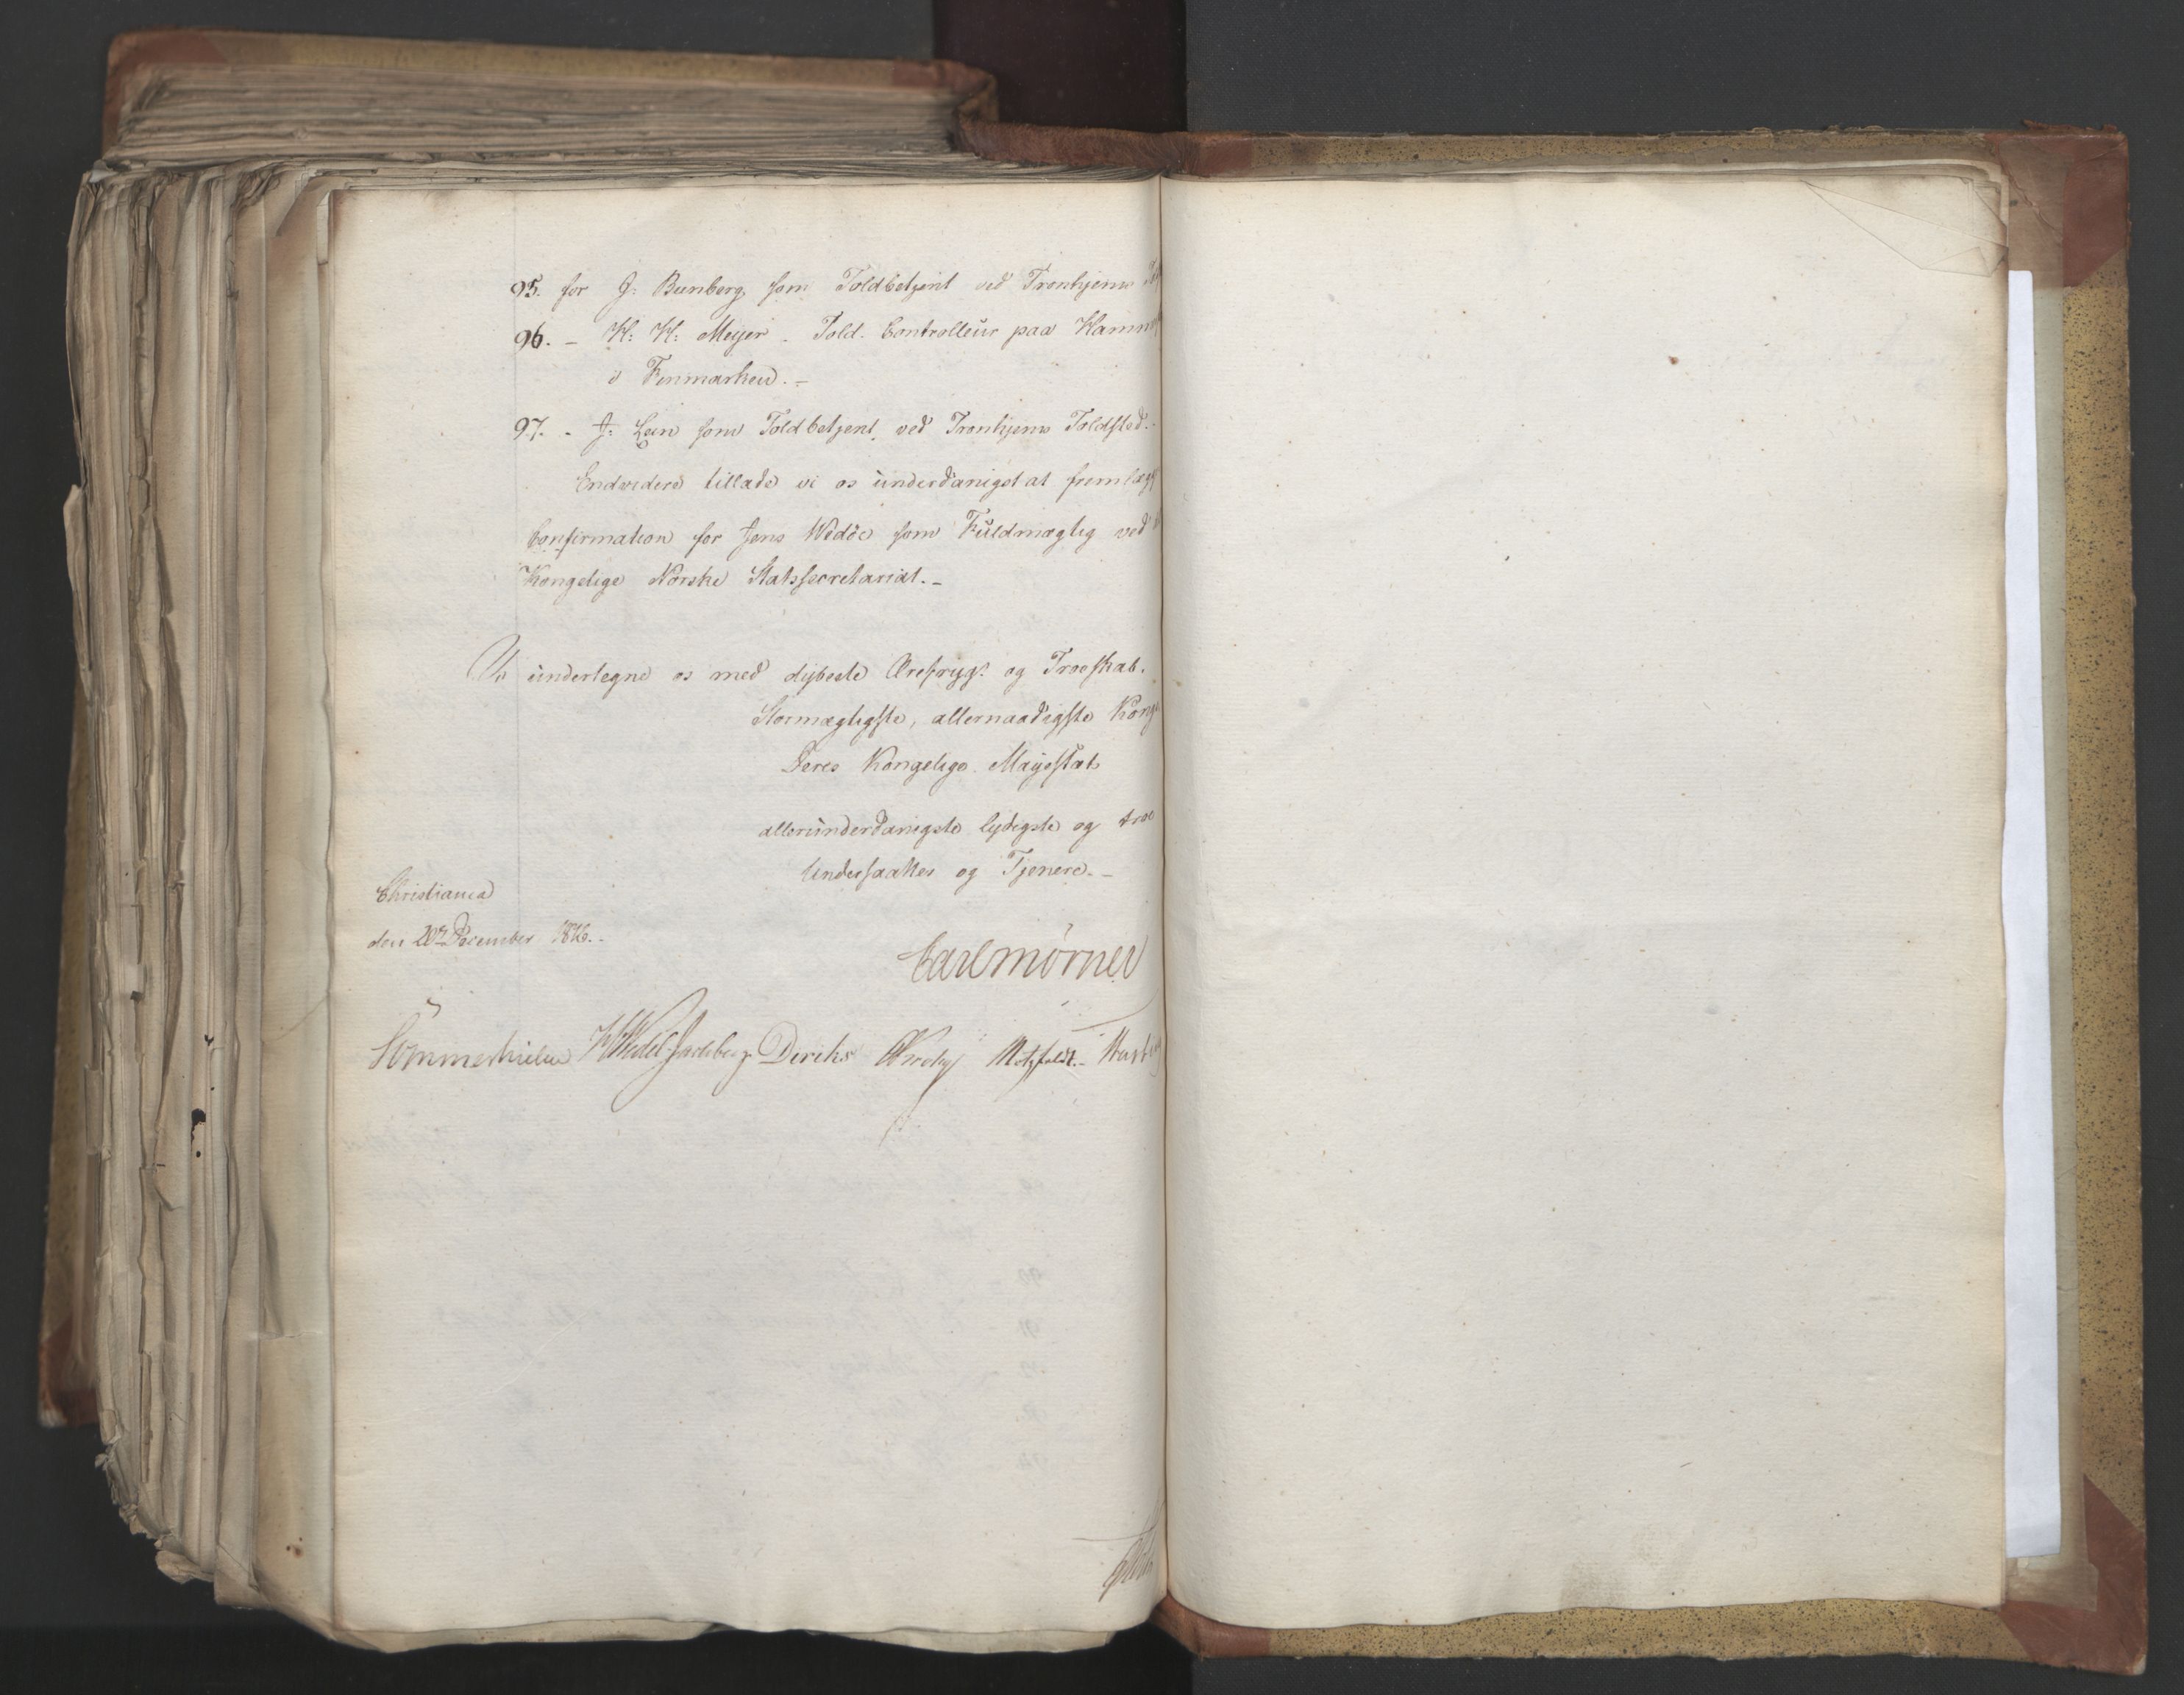 95. for J: Bunberg som Toldbetjent ved Tronhjems
96. - H: H: Meyer - Told. Controlleur paa Hamm
i Finmarken. -
97. - J: Lein som Toldbetjent ved Tronhjems Toldsted.
Endvidere tillade vi os underdanigst at fremlægg
Confirmation for Jens Wedde som Fuldmægtig ved
Kongelige Norske Statssecretariat. -
Vi undertegne os med dybeste Ærefrygt og Troeskab.
Stormægtigste, allernaadigste Konge
Deres Kongelige Mayestæts
allerunderdanigste lydigste og troe
Undersaatter og Tjenere. -
Christiania
den 20de December 1816. -
Carl Mörner
Sommerhielm HWedel Jarlsberg Diriks Krohg Motzfeldt.